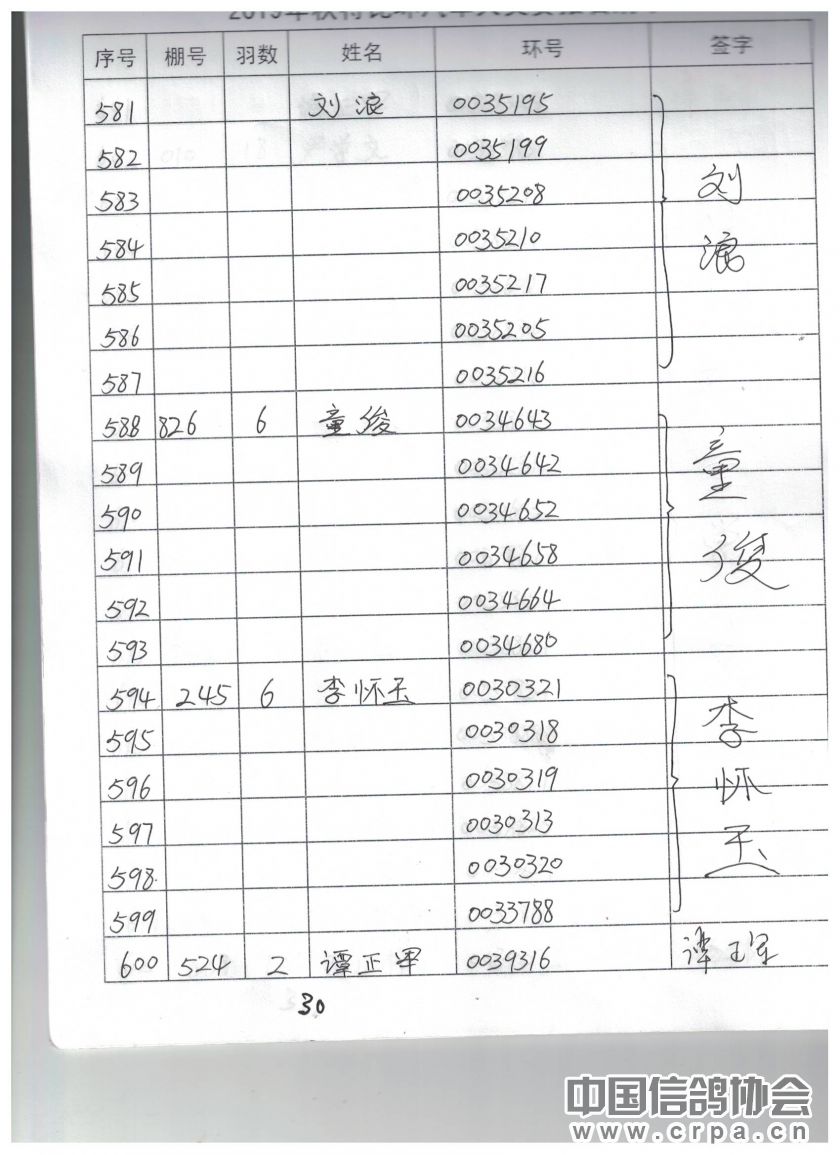 序号 棚号 羽数 姓名 环号 签字
581 刘浪 0035195
582 0035199
583 0035208 刘
584 0035210 浪
585 0035217
586 0035205
587 0035216
588 826 6 童俊 0034643
589 0034642 童
590 0034652
591 0034658 俊
592 0034664
593 0034680
594 245 6 李怀玉 0030321
595 0030318 李
596 0030319 怀
597 0030313 玉
598 0030320
599 0033788
600 524 2 谭正军 0039316 谭正军
30
中国信鸽协会
www.crpa.cn